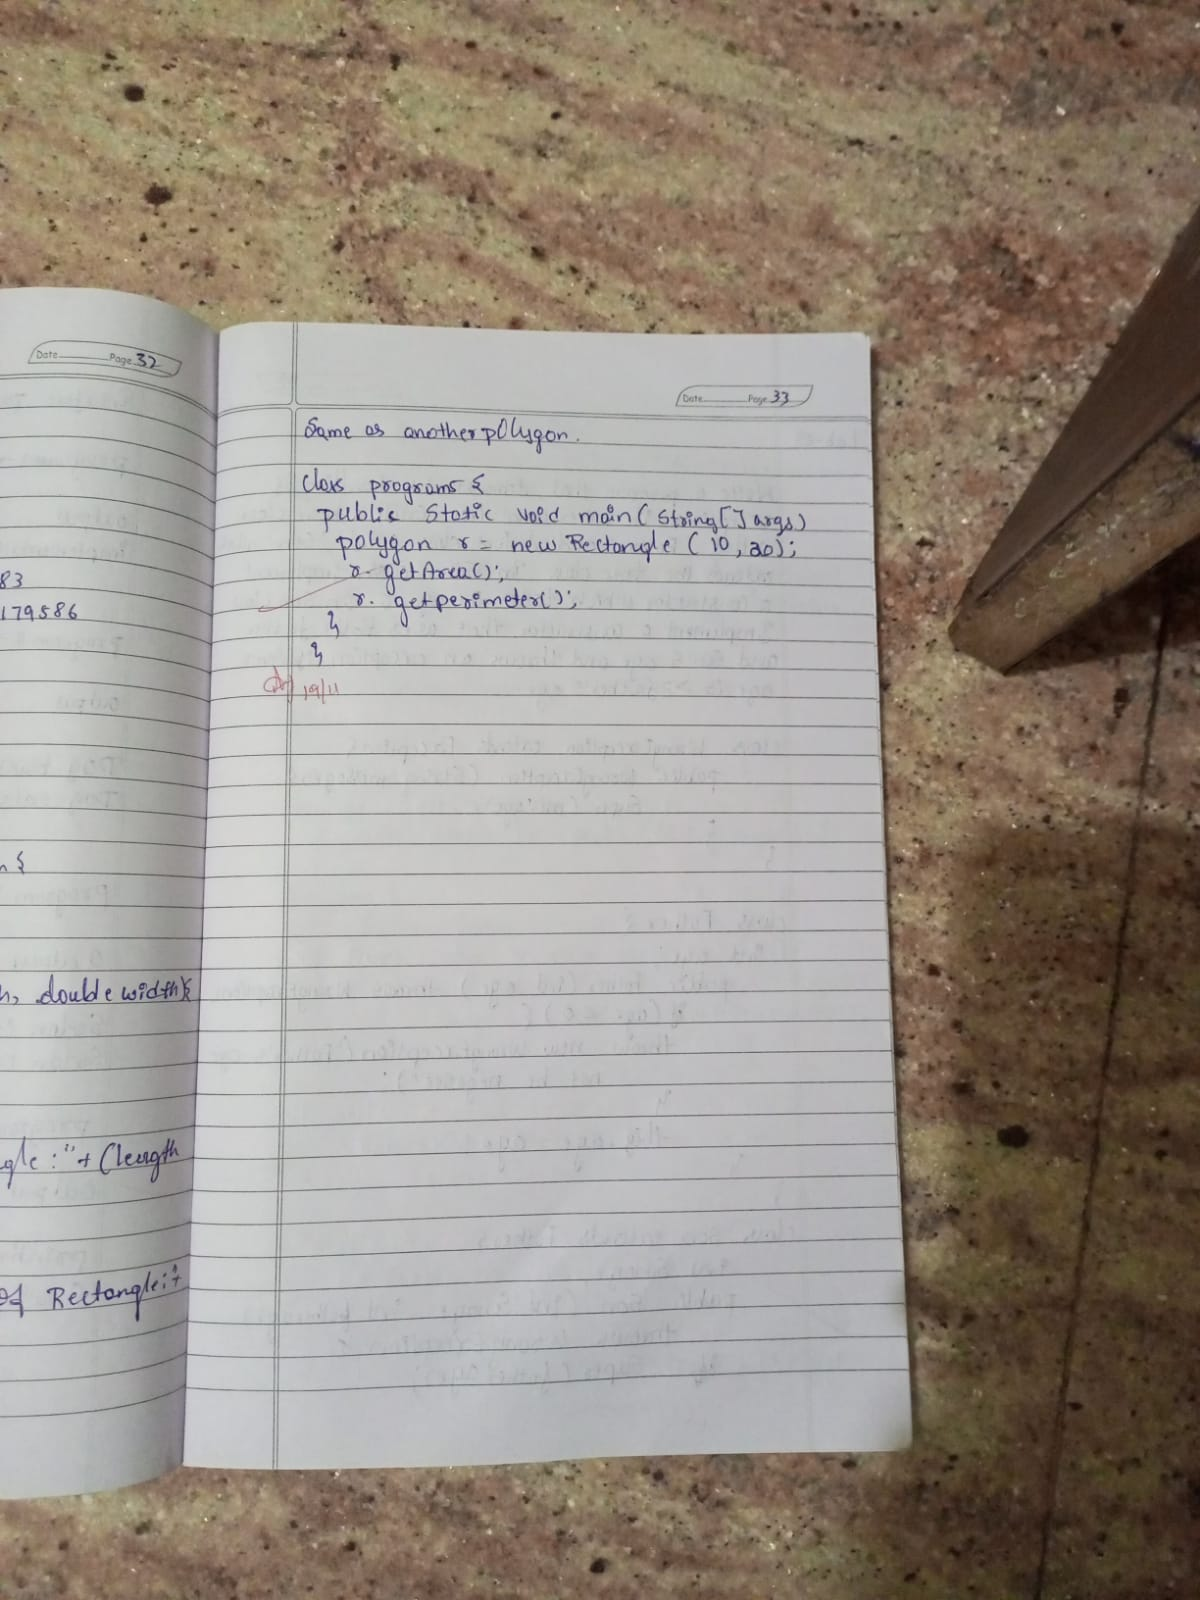 Date Page 32
83
179586
n {
h, double width){
gle :"+ (length
of Rectangle:"+
Date Page 33
Same as another polygon.
class programs {
public static void main(String[] args)
polygon r = new Rectangle (10, 20);
r. getArea();
r. getperimeter();
}
}
19/11